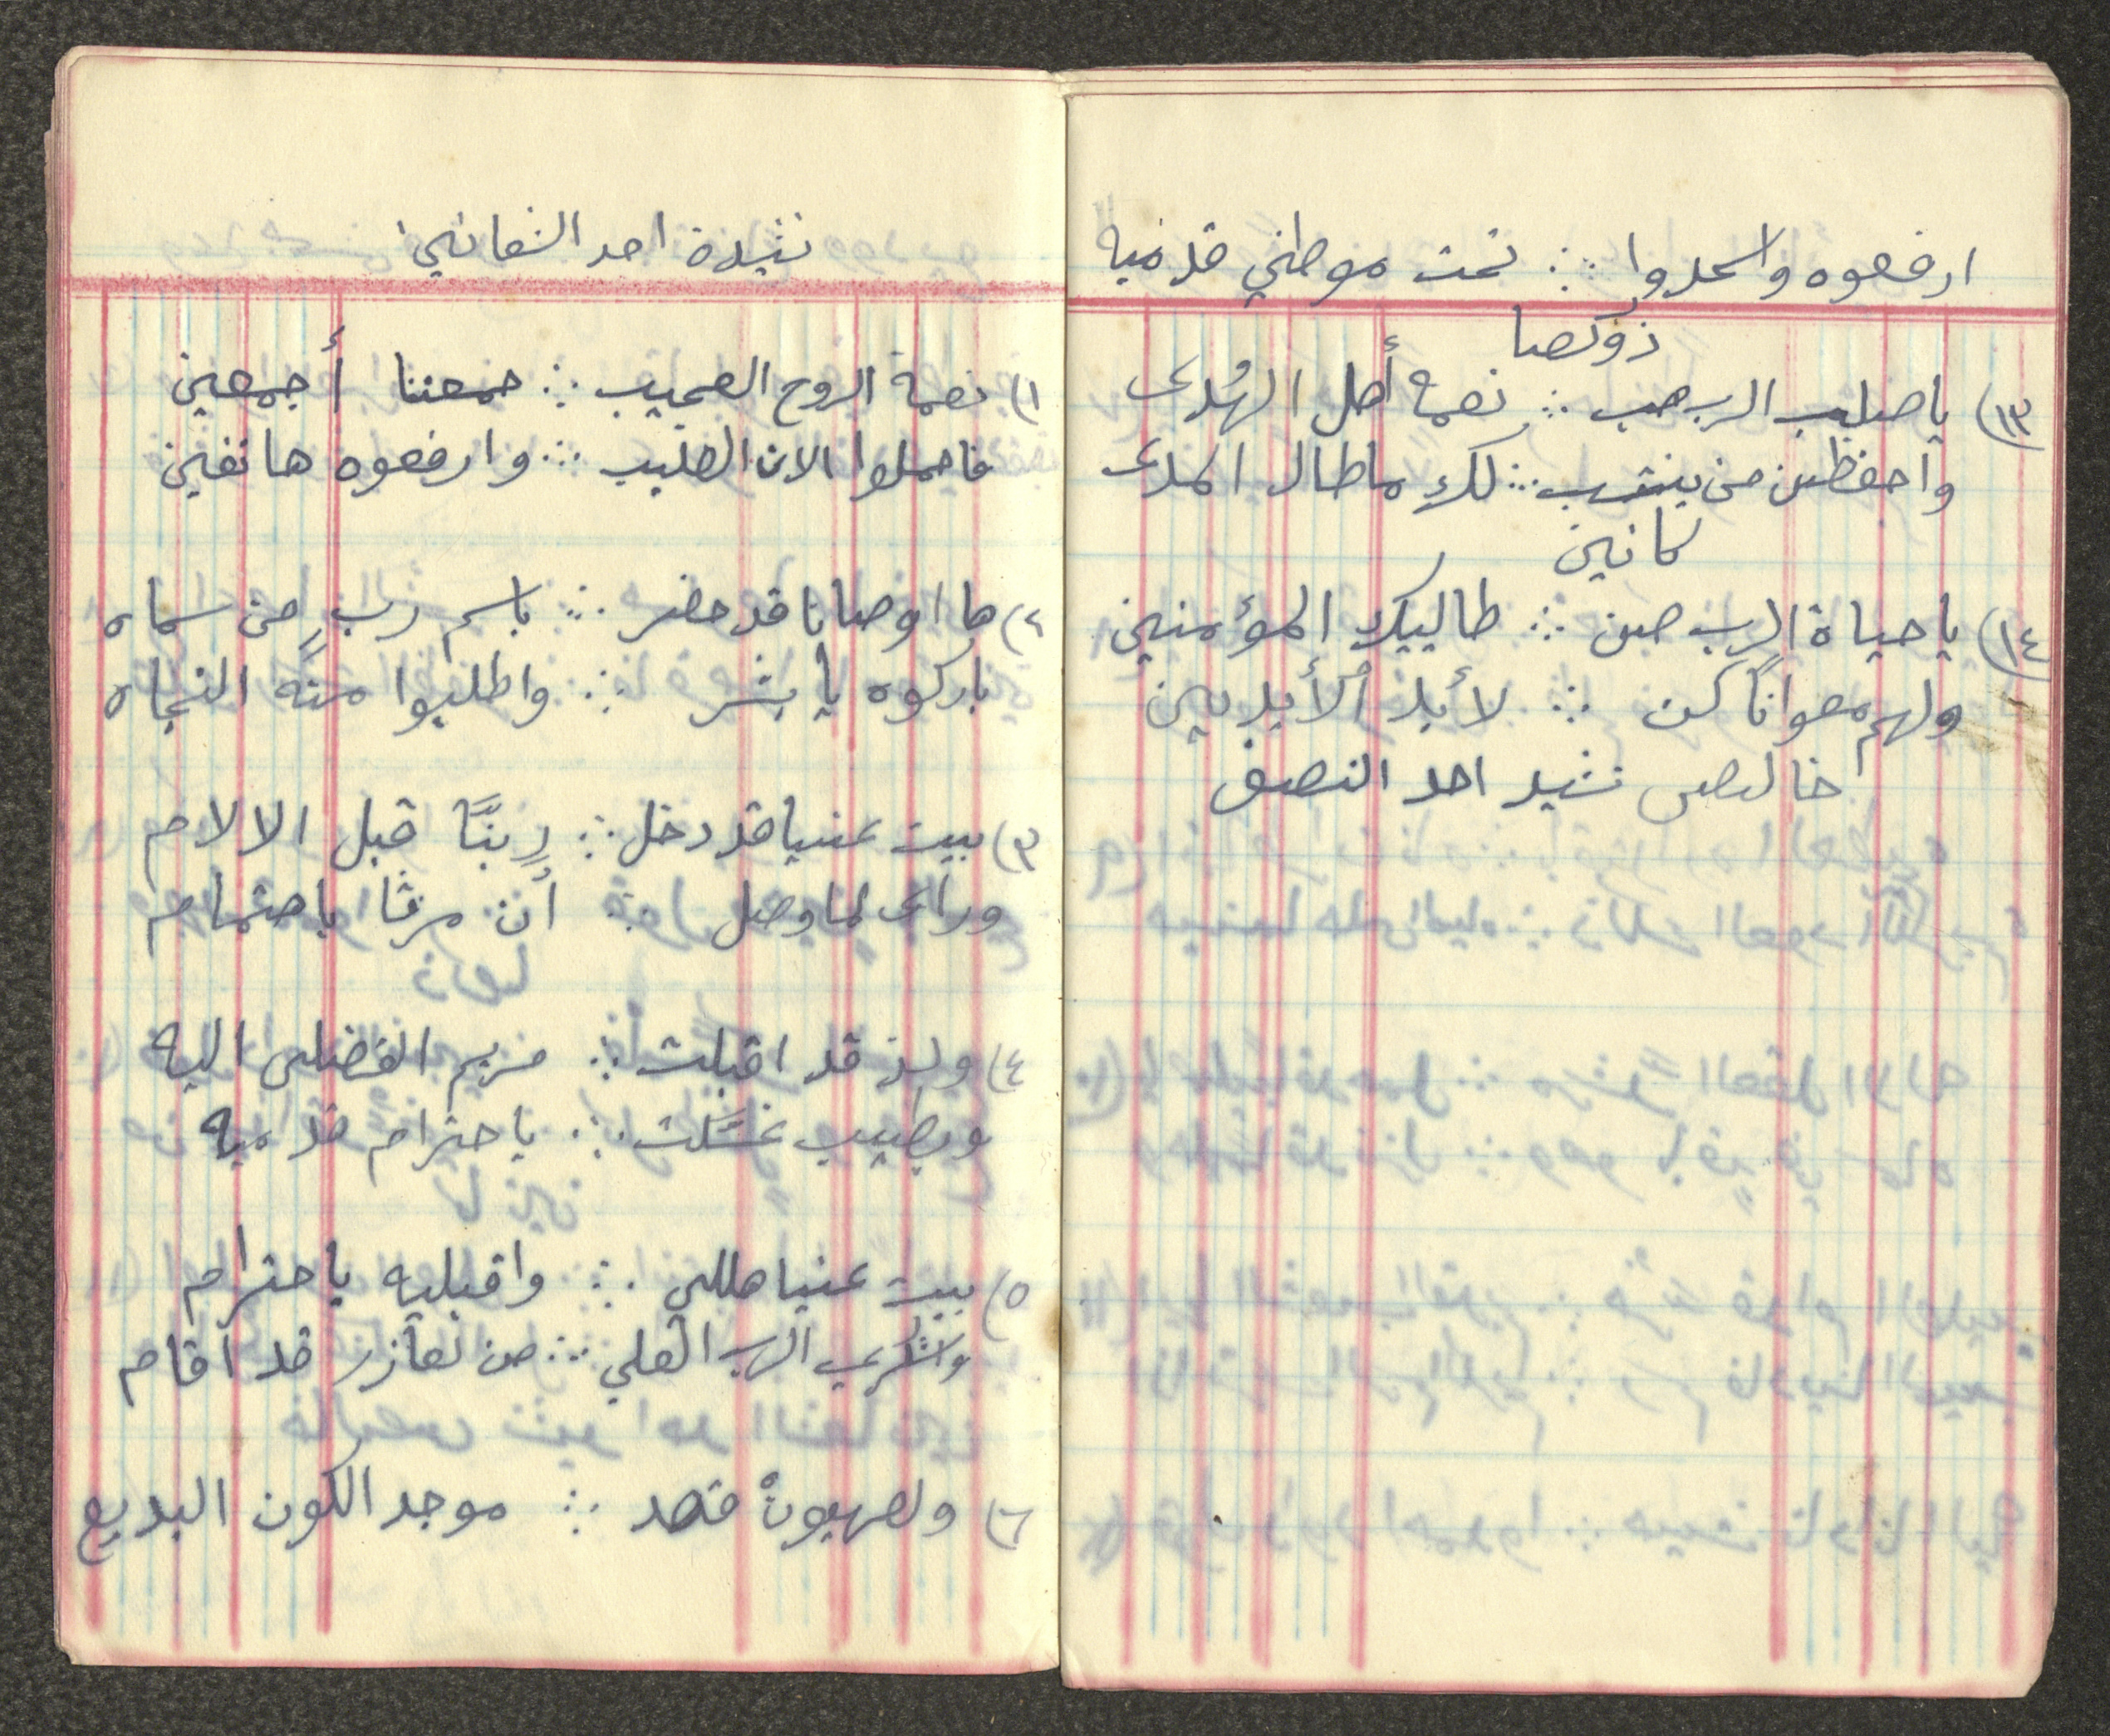 ارفعوه واسجدوا ∴ تحت موطئ قدميه
ذوكصا
١٣) يا صليب الرب هب ∴ نعمه أهل الهُدى
واحفظن من ينتسب ∴ لك ما طال المدى
كانين
١٤) يا حياة الرب صن ∴ طالبيك المؤمنين
ولهم معواناً كن ∴ لأبد الأبديين
خالص نشيد احد النصف
نشيدة احد الشعانين
١) نعمة الروح العجيب ∴ جمعتنا أجمعين
فاحملوا الان الصليب ∴ وارفعوه هاتفين
٢) ها اوصانا قد حضر ∴ باسم ربٍ من سماه
باركوه يا بشر ∴ واطلبوا منه النجاه
٣) بيت عنيا قد دخل ∴ ربنَّا قبل الالام
ورأى لما وصل ∴ أن مرثا باهتمام
٤) ولذ قد اقبلت ∴ مريم الفضلى اليه
وبطيب غسَّلت ∴ باحترام قدميه
٥) بيت عنيا هللي ∴ واقبليه باحترام
واشكري الرب العلي ∴ من لعازر قد اقام
٦) ولصهيونْ قصد ∴ موجد الكون البديع